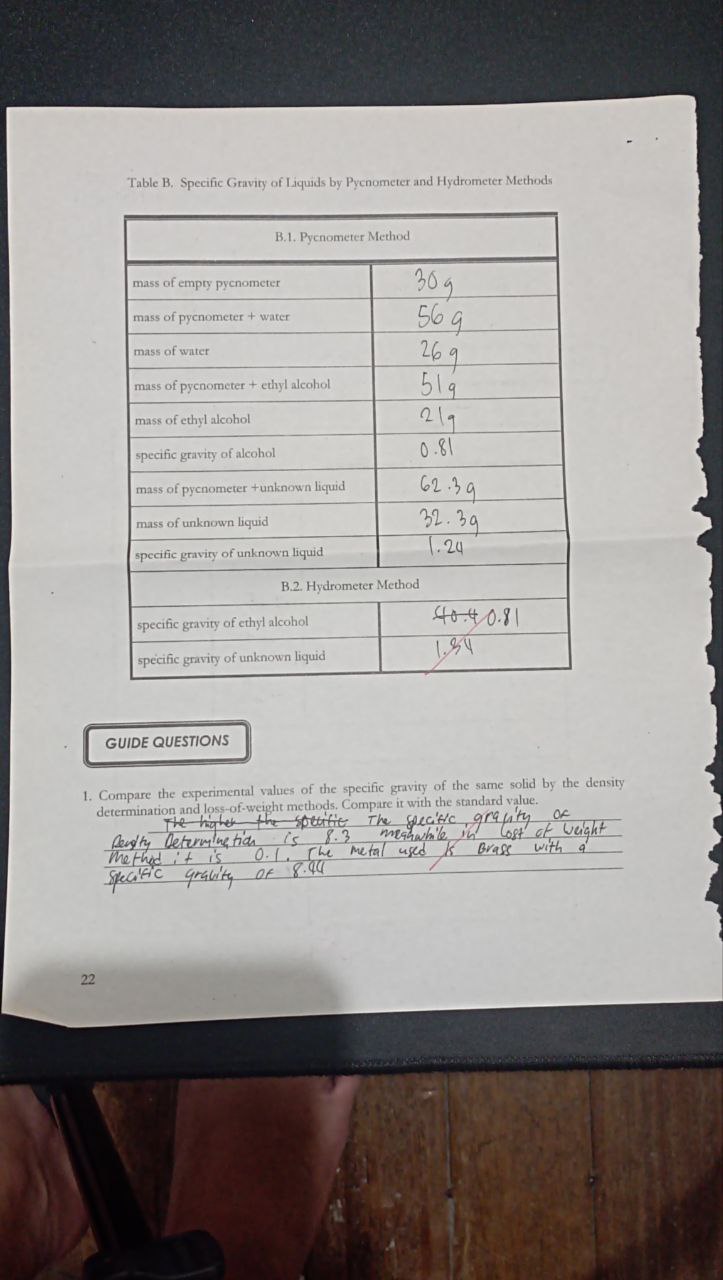 Table B. Specific Gravity of Liquids by Pycnometer and Hydrometer Methods
B.1. Pycnometer Method
mass of empty pycnometer 30 g
mass of pycnometer + water 56 g
mass of water 26 g
mass of pycnometer + ethyl alcohol 51 g
mass of ethyl alcohol 21 g
specific gravity of alcohol 0.81
mass of pycnometer +unknown liquid 62.3 g
mass of unknown liquid 32.3 g
specific gravity of unknown liquid 1.24
B.2. Hydrometer Method
specific gravity of ethyl alcohol 40.4 0.81
specific gravity of unknown liquid 1.34
GUIDE QUESTIONS
1. Compare the experimental values of the specific gravity of the same solid by the density
determination and loss-of-weight methods. Compare it with the standard value.
The higher the specific The specific gravity of
Density Determination is 8.3 meanwhile in Lost of Weight
Method it is 0.1. The metal used is Brass with a
specific gravity of 8.44
22